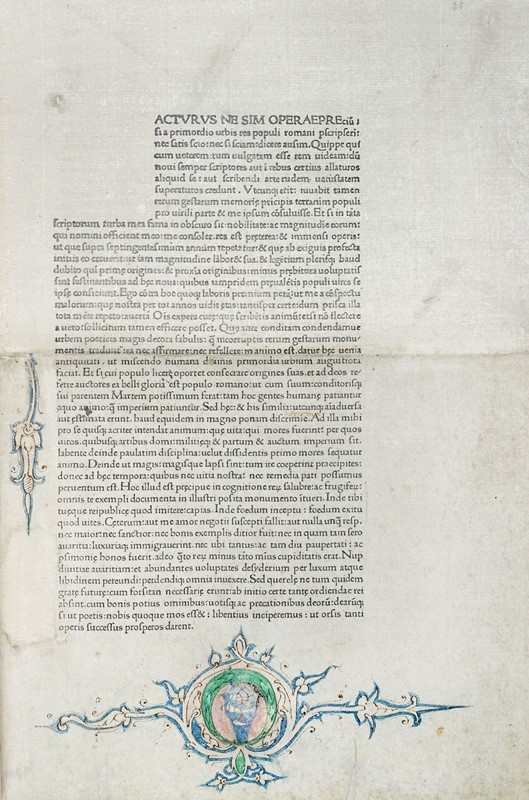 ACTVRVS NE SIM OPERAEPREciũ :
si a primordio urbis res populi romani pscripserĩ:
nec satis scio: nec si sciam: dicere ausim. Quippe quĩ
cum ueterem: tum uulgatam esse rem uideam: dũ
noui semper scriptores aut ĩ rebus certius allaturos
aliquid se: aut scribendi arte rudem uetustatem
superaturos credunt. Vtcunq erit: iuuabit tamen
rerum gestarum memorię pricipis terrarum populi
pro uirili parte & me ipsum cõsuluisse. Et si in tãta
scriptorum turba mea fama in obscuro sit: nobilitate: ac magnitudĩe eorum:
qui nomini officient meo: me consoler. res est pręterea: & immensi operis:
ut que supra septingentesimum annum repetatur: & quę ab exiguis profecta
initiis eo creuerit: ut iam magnitudine laboret sua. & legẽtium plerisq; haud
dubito quĩ primę origines: & proxĩa originibus: minus prębitura uoluptatis
sint festinantibus ad hęc noua: quibus iampridem pręualẽtis populi uires se
ipsę conficiunt. Ego cõtra hoc quoq; laboris premium petã: ut me a cõspectu
malorum: quę nostra per tot annos uidit ętas: tantisper certe: dum prisca illa
tota mẽte repeto: auertã O is expers curę: quę scribẽtis animũ: etsi nõ flectere
a uero: sollicitum tamen efficere posset. Quę ante conditam condendamue
urbem poeticis magis decora fabulis: q̃ incorruptis rerum gestarum monu-
mentis tradunt: ea nec affirmare: nec refellere: in animo est. datur hęc uenia
antiquitati, ut miscendo humana diuinis primordia urbium augustiora
faciat. Et si cui populo licere oportet consecrare origines suas, et ad deos re-
ferre auctores ea belli gloria est populo romano: ut cum suum: conditorisq;
sui parentem Martem potissimum ferat: tam hoc gentes humanę patiantur
ęquo animo: q̃ imperium patiuntur. Sed hęc: & his similia: utcunq; aĩaduersa
aut ęstimata erunt. haud equidem in magno ponam discrimĩe. Ad illa mihi
pro se quisq; acriter intendat animum: quę uita: qui mores fuerint: per quos
uiros. quibusq; artibus domi: militięq; & partum & auctum imperium sit.
labente deinde paulatim disciplina: uelut dissidentis primo mores sequatur
animo. Deinde ut magis: magisque lapsi sint: tum ire coeperint pracipites:
donec ad hęc tempora: quibus nec uitia nostra: nec remedia pati possumus
peruentum est. Hoc illud est pręcipue in cognitione reꝝ salubre: ac frugiferũ:
omnis te exempli documenta in illustri posita monumento ĩtueri. Inde tibi
tuęque reipublicę quod imitere: capias. Inde foedum inceptu: foedum exitu
quod uites. Ceterum: aut me amor negotii suscepti fallit: aut nulla unq̃ resp.
nec maior: nec sanctior: nec bonis exemplis ditior fuit: nec in quam tam sero
auaritia: luxuriaq; immigrauerint. nec ubi tantus: ac tam diu paupertati: ac
psimonię bonos fuerit. adeo q̃to reꝝ minus tãto mĩus cupiditatis erat. Nup
diuitiae auaritiam: et abundantes uoluptates desyderium per luxum atque
libidinem pereundi: perdendiq; omnia inuexere. Sed querelę ne tum quidem
gratę futurę: cum forsitan necessarię erunt: ab initio certe tantę ordiendae rei
absint. cum bonis potius ominibus: uotisq; ac precationibus deorũ: dearũq;
si ut poetis: nobis quoque mos esset: libentius inciperemus: ut orsis tanti
operis successus prosperos darent.